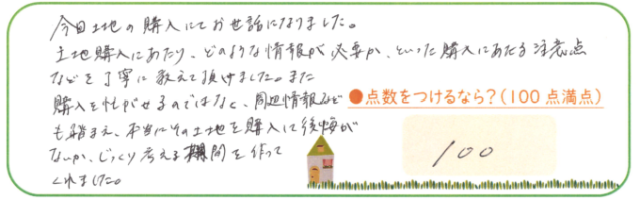 今回土地の購入にてお世話になりました。
土地購入にあたり、どのような情報が必要か、といった購入にあたる注意点
などを丁寧に教えて頂けました。また
購入を性がせるのではなく、周辺情報など
も踏まえ、本当にその土地を購入に後悔が
ないか、じっくり考える機間を作って
くれました。
●点数をつけるなら?(100点満点)
100